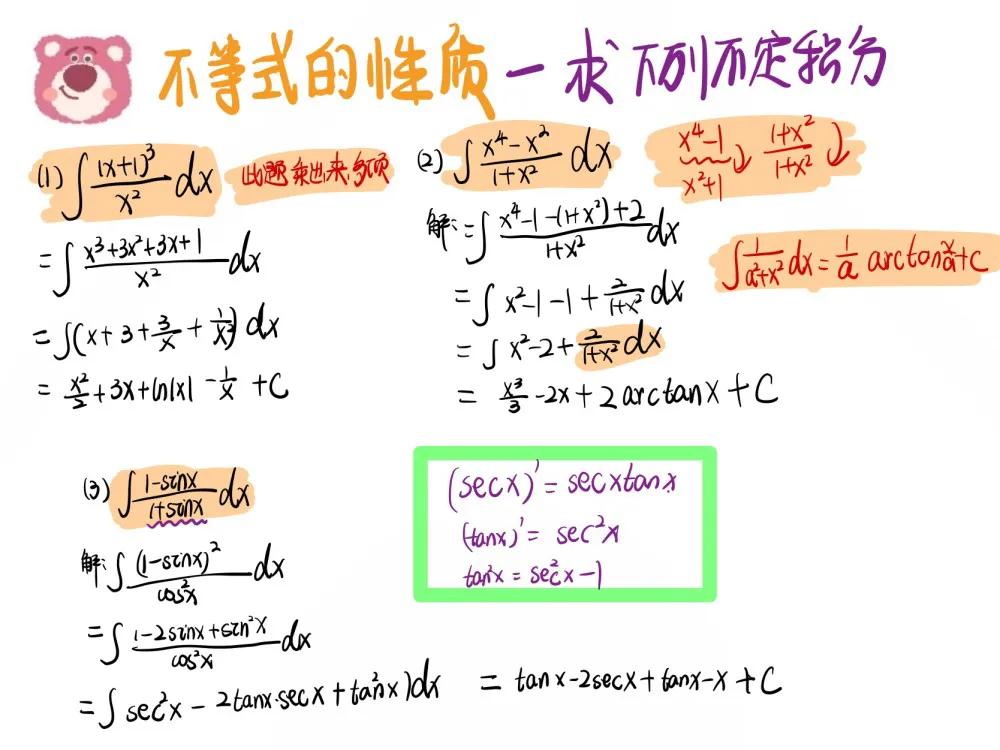 不等式的性质－求下列不定积分
(1) ∫ (x+1)³/x² dx 此题乘出来,多项
= ∫ (x³+3x²+3x+1)/x² dx
= ∫(x+3+3/x+1/x²) dx
= x²/2 + 3x + ln|x| - 1/x + C
(2) ∫ (x⁴-x²)/(1+x²) dx
(x⁴-1)/(x²+1) (1+x²)/(1+x²)
解: = ∫ (x⁴-1-(1+x²)+2)/(1+x²) dx
∫ 1/(a²+x²) dx = 1/a arctan x/a + C
= ∫ x²-1-1+2/(1+x²) dx
= ∫ x²-2+2/(1+x²) dx
= x³/3 -2x+2arctanx+C
(3) ∫ (1-sinx)/(1+sinx) dx
解: ∫ (1-sinx)²/cos²x dx
= ∫ (1-2sinx+sin²x)/cos²x dx
= ∫ sec²x - 2tanx·secx + tan²x)dx = tanx-2secx+tanx-x+C
(secx)' = secxtanx
(tanx)' = sec²x
tan²x = sec²x-1